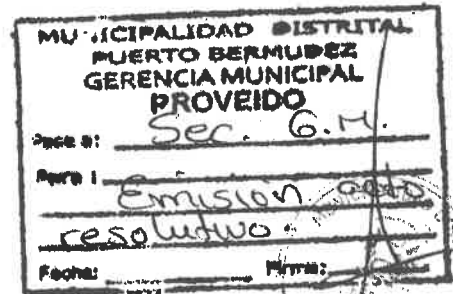 MUNICIPALIDAD DISTRITAL
PUERTO BERMUDEZ
GERENCIA MUNICIPAL
PROVEIDO
Pase a: Sec. G.M.
Para: Emision acto
resolutivo.
Fecha: Firma: